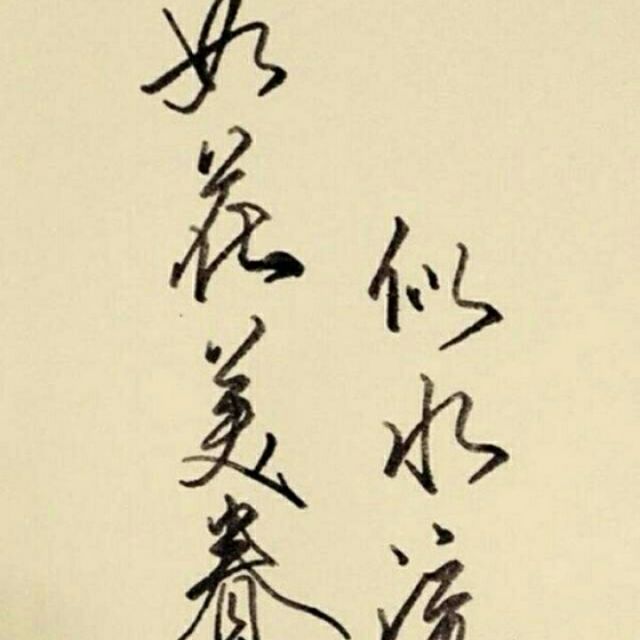 如花美眷
似水流